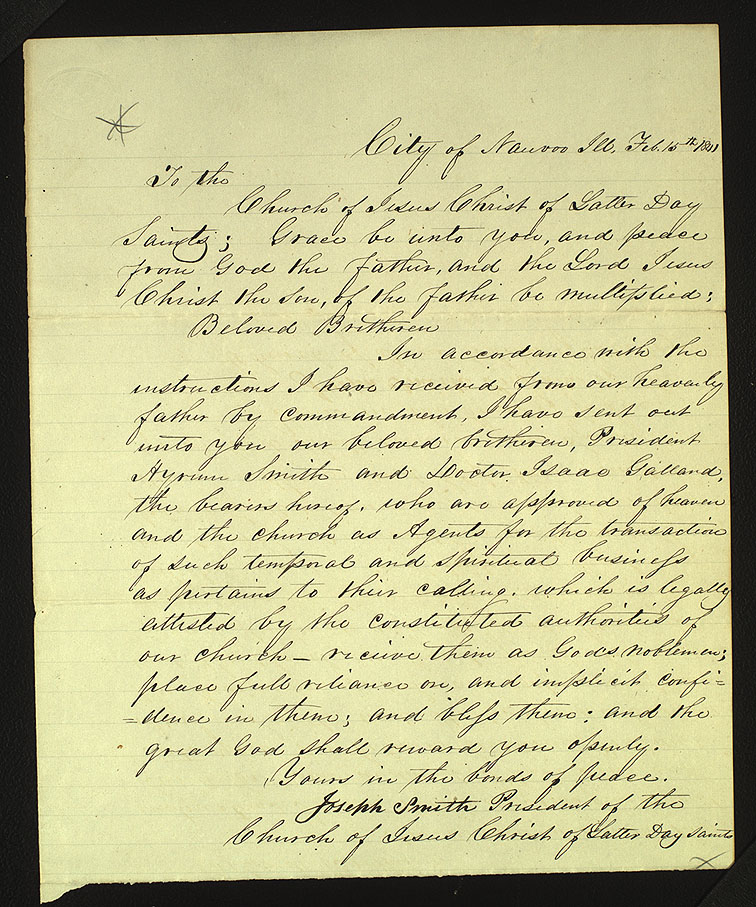 City of Nauvoo Ill. Feb. 15th 1841
To the
Church of Jesus Christ of Latter Day
Saints; Grace be unto you, and peace
from God the father, and the Lord Jesus
Christ the Son, of the father be multiplied;
Beloved Bretheren
In accordance with the
instructions I have received from our heavenly
father by commandment, I have sent out
unto you our beloved bretheren, President
Hyrum Smith and Doctor Isaac Galland,
the bearers hereof. who are approved of heaven
and the church as Agents for the transaction
of such temporal and spiritual business
as pertains to their calling. which is legally
attested by the constituted authorities of
our church — receive them as Gods noblemen;
place full reliance on, and implicit confi=
=dence in them; and bless them: and the
great God shall reward you openly.
Yours in the bonds of peace.
Joseph Smith President of the
Church of Jesus Christ of Latter Day saints